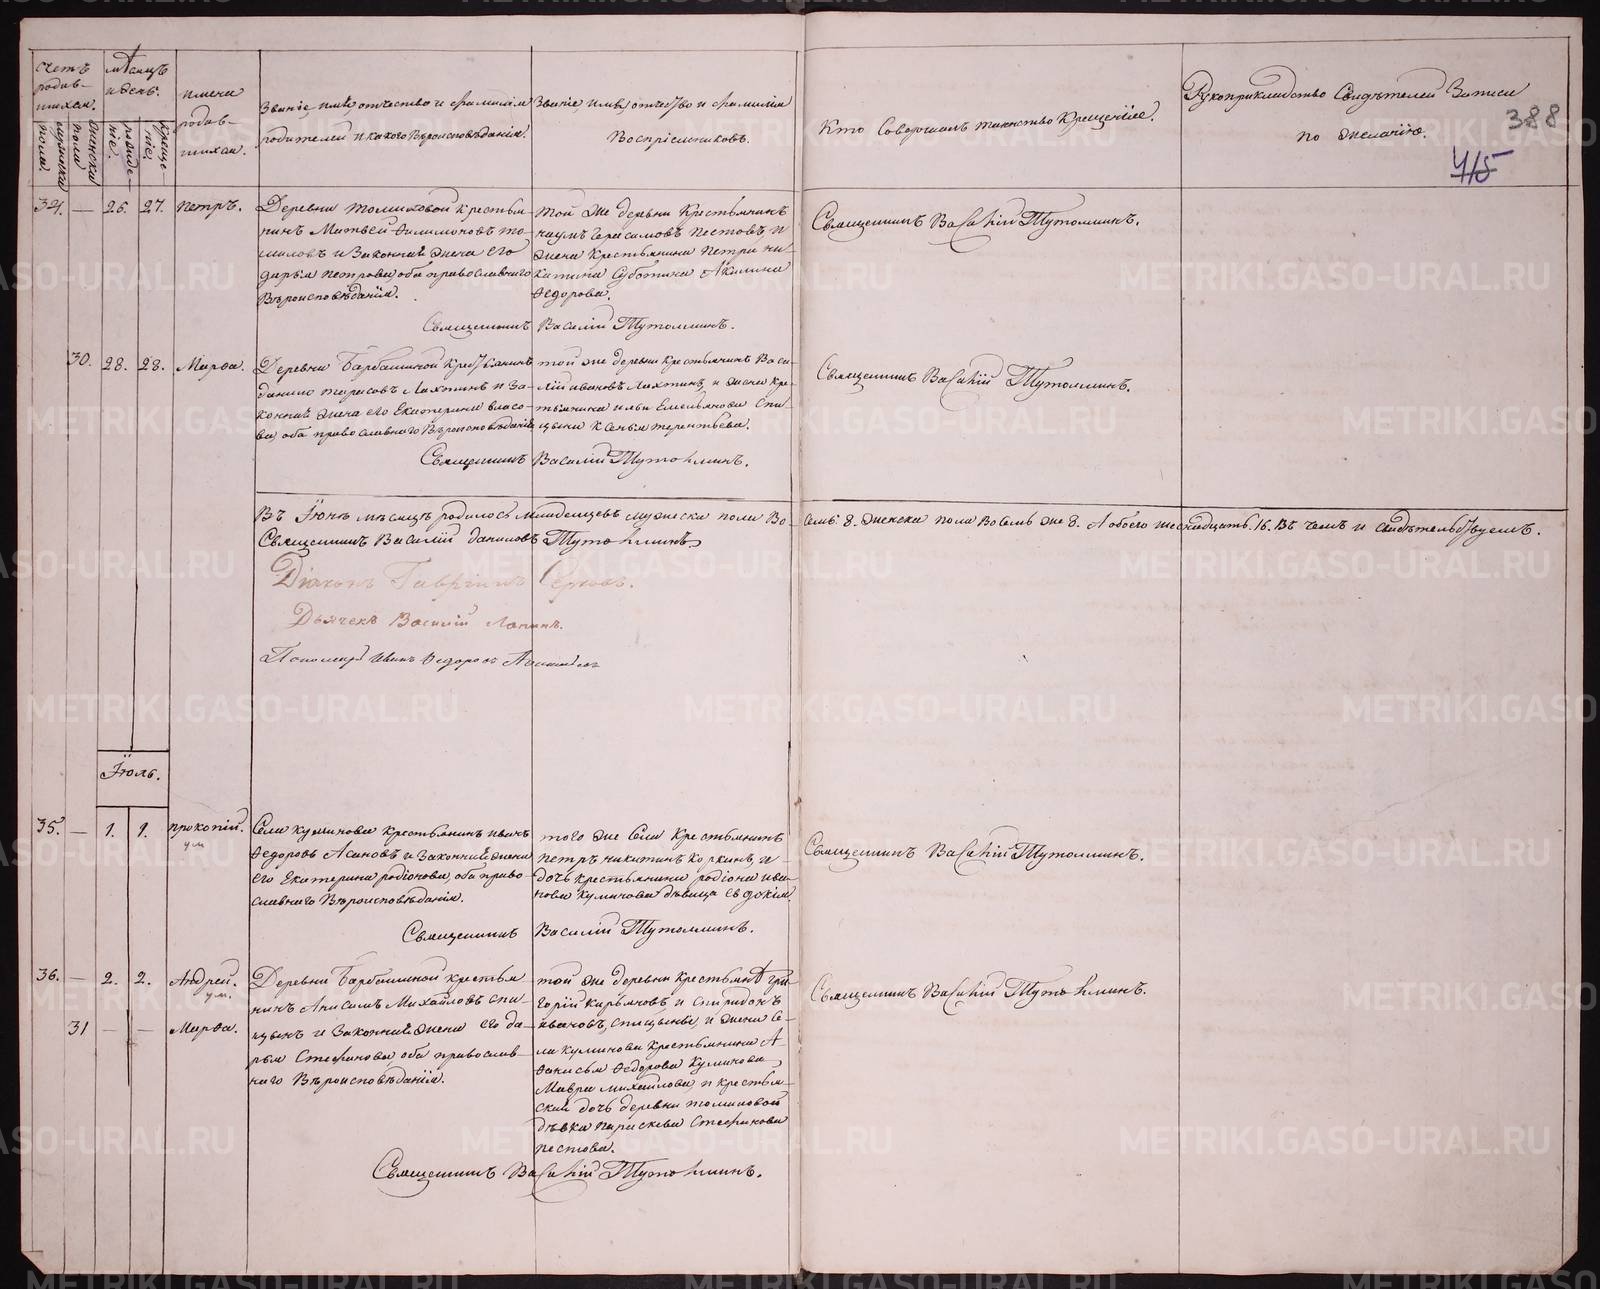 счетъ родив-шихся.
мѣсяцъ и день.
имена родив-шихся.
мужеска пола.
женска пола
рожде-ніе.
креще-ніе.
Званіе имя, отчество и фамилія
родителей и какого Вѣроисповѣданія.
Званіе имя, отчество и фамилія
Воспріемниковъ.
Кто Совершалъ таинство Крещеніе.
Рукоприкладство Свидѣтелей Записи
по желанію.
388
415
34. — 26. 27. Петръ.
Деревни Томиловой крестья-
нинъ Матвей Филимоновъ То-
миловъ и Законная жена Его
дарья петрова, оба православнаго
Вѣроисповѣданія.
той же деревни Крестьянинъ
наумъ Герасимовъ Пестовъ и
жена Крестьянина Петра ни-
китина Суботина Акилина
Федорова.
Священникъ Василій Тутолминъ.
Священникъ Василій Тутолминъ.
30. 28. 28. Марфа.
Деревни Барабашиной Крестьянинъ
данило тарасовъ Лахтинъ и За-
конная жена его Екатерина власо-
ва, оба православнаго Вѣроисповѣданія
той же деревни крестьянинъ Васи-
лій ивановъ Лахтинъ, и жена Кре-
стьянина ильи Емельянова Спи-
цына Ксенья терентьева.
Священникъ Василій Тутолминъ.
Священникъ Василій Тутолминъ.
Въ Іюнѣ мѣсяцѣ родилось младенцевъ мужеска пола Во-семь 8. женска пола Восемь же 8. А обоего шеснадцать. 16. Въ чемъ и свидѣтельствуемъ.
Священникъ Василій даниловъ Тутолминъ
Діаконъ Гаврiилъ Серковъ.
Дьячекъ Василій Ляпинъ.
Пономарь Иванъ Федоровъ
Іюль.
35. — 1. 1. прокопій.
ум
Села куминова крестьянинъ иванъ
Федоровъ Асановъ и Законная жена
Его Екатерина родіонова, оба право-
славнаго Вѣроисповѣданія.
того же Села Крестьянинъ
петръ никитинъ Коркинъ, и
дочь крестьянина родіона ива-
нова Куминова дѣвица Евдокія.
Священникъ Василій Тутолминъ.
Священникъ Василій Тутолминъ.
36. — 2. 2. Андрей.
ум.
31 — — Марфа.
Деревни Барабашиной крестья
нинъ Анисимъ Михайловъ спи-
цынъ и Законная жена его да-
рья Стефанова оба православ-
наго Вѣроисповѣданія.
той же деревни крестьяне гри
горій кирьяновъ и спиридонъ
ивановъ, спицыны, и жена Се-
ла куминова крестьянина А
фанасья Федорова Куминова
Мавра михайлова, и крестья-
ская дочь деревни томиловой
дѣвка параскева Стефанова
пестова.
Священникъ Василій Тутолминъ.
Священникъ Василій Тутолминъ.
METRIKI.GASO-URAL.RU